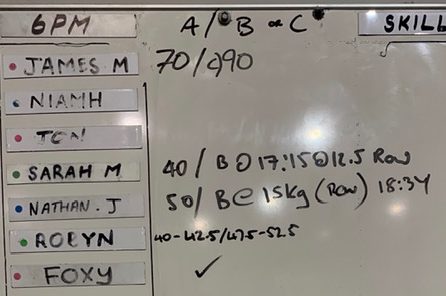 6PM A/B or C SKILL
JAMES M 70/90
NIAMH
TON
SARAH M 40/B@17:15@12.5 Row
NATHAN.J 50/B@15kg (Row) 18:34
ROBYN 40-42.5/47.5-52.5
FOXY ✓